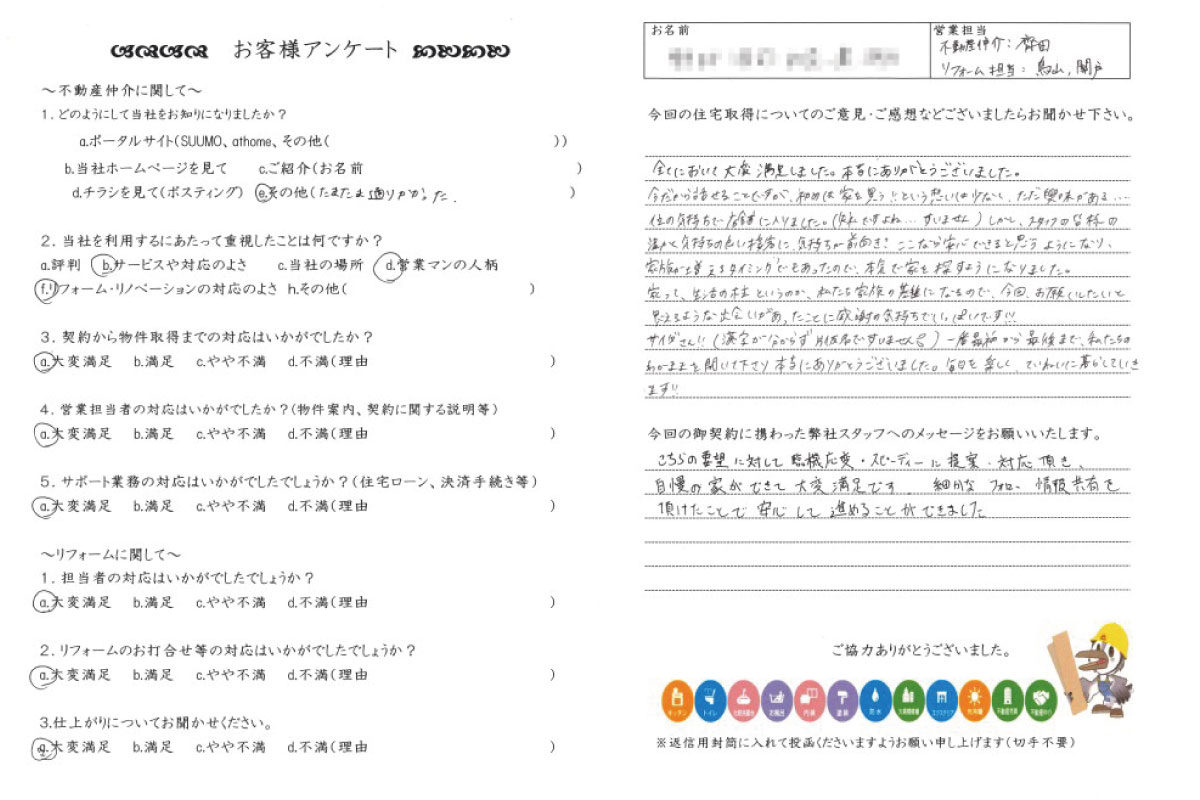 お客様アンケート
～不動産仲介に関して～
1．どのようにして当社をお知りになりましたか？
a.ポータルサイト(SUUMO、athome、その他( ))
b.当社ホームページを見て c.ご紹介(お名前 )
d.チラシを見て(ポスティング) e.その他(たまたま通りがかった. )
2．当社を利用するにあたって重視したことは何ですか？
a.評判 b.サービスや対応のよさ c.当社の場所 d.営業マンの人柄
f.リフォーム・リノベーションの対応のよさ h.その他( )
3．契約から物件取得までの対応はいかがでしたか？
a.大変満足 b.満足 c.やや不満 d.不満(理由 )
4．営業担当者の対応はいかがでしたか？(物件案内、契約に関する説明等)
a.大変満足 b.満足 c.やや不満 d.不満(理由 )
5．サポート業務の対応はいかがでしたでしょうか？(住宅ローン、決済手続き等)
a.大変満足 b.満足 c.やや不満 d.不満(理由 )
～リフォームに関して～
1．担当者の対応はいかがでしたでしょうか？
a.大変満足 b.満足 c.やや不満 d.不満(理由 )
2．リフォームのお打合せ等の対応はいかがでしたでしょうか？
a.大変満足 b.満足 c.やや不満 d.不満(理由 )
3.仕上がりについてお聞かせください。
a.大変満足 b.満足 c.やや不満 d.不満(理由 )
お名前
営業担当
不動産仲介：齊田
リフォーム担当：鳥山,関戸
今回の住宅取得についてのご意見・ご感想などございましたらお聞かせ下さい。
全てにおいて大変満足しました。本当にありがとうございました。
今だから話せることですが、初めは家を買う!!という想いは少なく、ただ興味がある…
位の気持ちでお店に入りました。(失礼ですよね…すいません)しかし、スタッフの皆様の
温かく気持ちの良い接客に、気持ちが前向き! ここなら安心できると思うようになり、
家族が増えるタイミングでもあったので、本気で家を探すようになりました。
家って、生活の柱というのか、私たち家族の基盤になるもので、今回、お願いしたいと
思えるような出会いがあったことに感謝の気持ちでいっぱいです!!!
サイダさん!!(漢字が分からず片仮名ですいません)一番最初から最後まで、私たちの
わがままを聞いて下さり本当にありがとうございました。毎日を楽しく、ていねいに暮らしていき
ます!!
今回の御契約に携わった弊社スタッフへのメッセージをお願いいたします。
こちらの要望に対して臨機応変・スピーディーに提案・対応頂き、
自慢の家ができて大変満足です. 細かなフォロー、情報共有を
頂けたことで安心して進めることができました
ご協力ありがとうございました。
キッチン トイレ 洗面化粧台 お風呂 内装 塗装 防水 エクステリア 太陽光 不動産売買 不動産仲介
※返信用封筒に入れて投函くださいますようお願い申し上げます(切手不要)